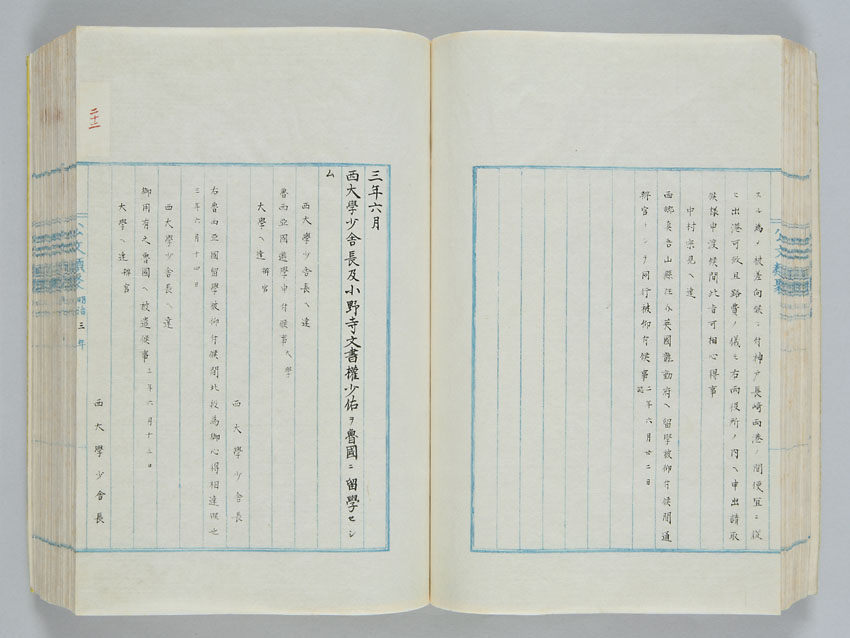 スル為メ被差向候ニ付神戸長崎両港ノ間便宜ニ従
ヒ出港可致且路費ノ儀モ右両役所ノ内ヘ申出請取
候様申渡候間此旨可相心得事
中村宗見ヘ達
西 直吉山縣 英國 ヘ留學被仰付候間通
辯官トシテ同行被仰付候事 三年六月廿二日
三年六月
西大學少舍長及小野寺文書權少佑ヲ魯國ニ留學セシ
ム
西大學少舍長ヘ達
魯西亞國遊學申付候事 大學
大學ヘ達 辨官
西大學少舍長
右魯西亞國留學被仰付候間此段為御心得相達候也
三年六月十四日
西大學少舍長ヘ達
御用有之魯國ヘ被遣候事 三年六月十三日
大學ヘ達 辨官
西大學少舍長
二十二
公文類聚
明治三年
公文類聚